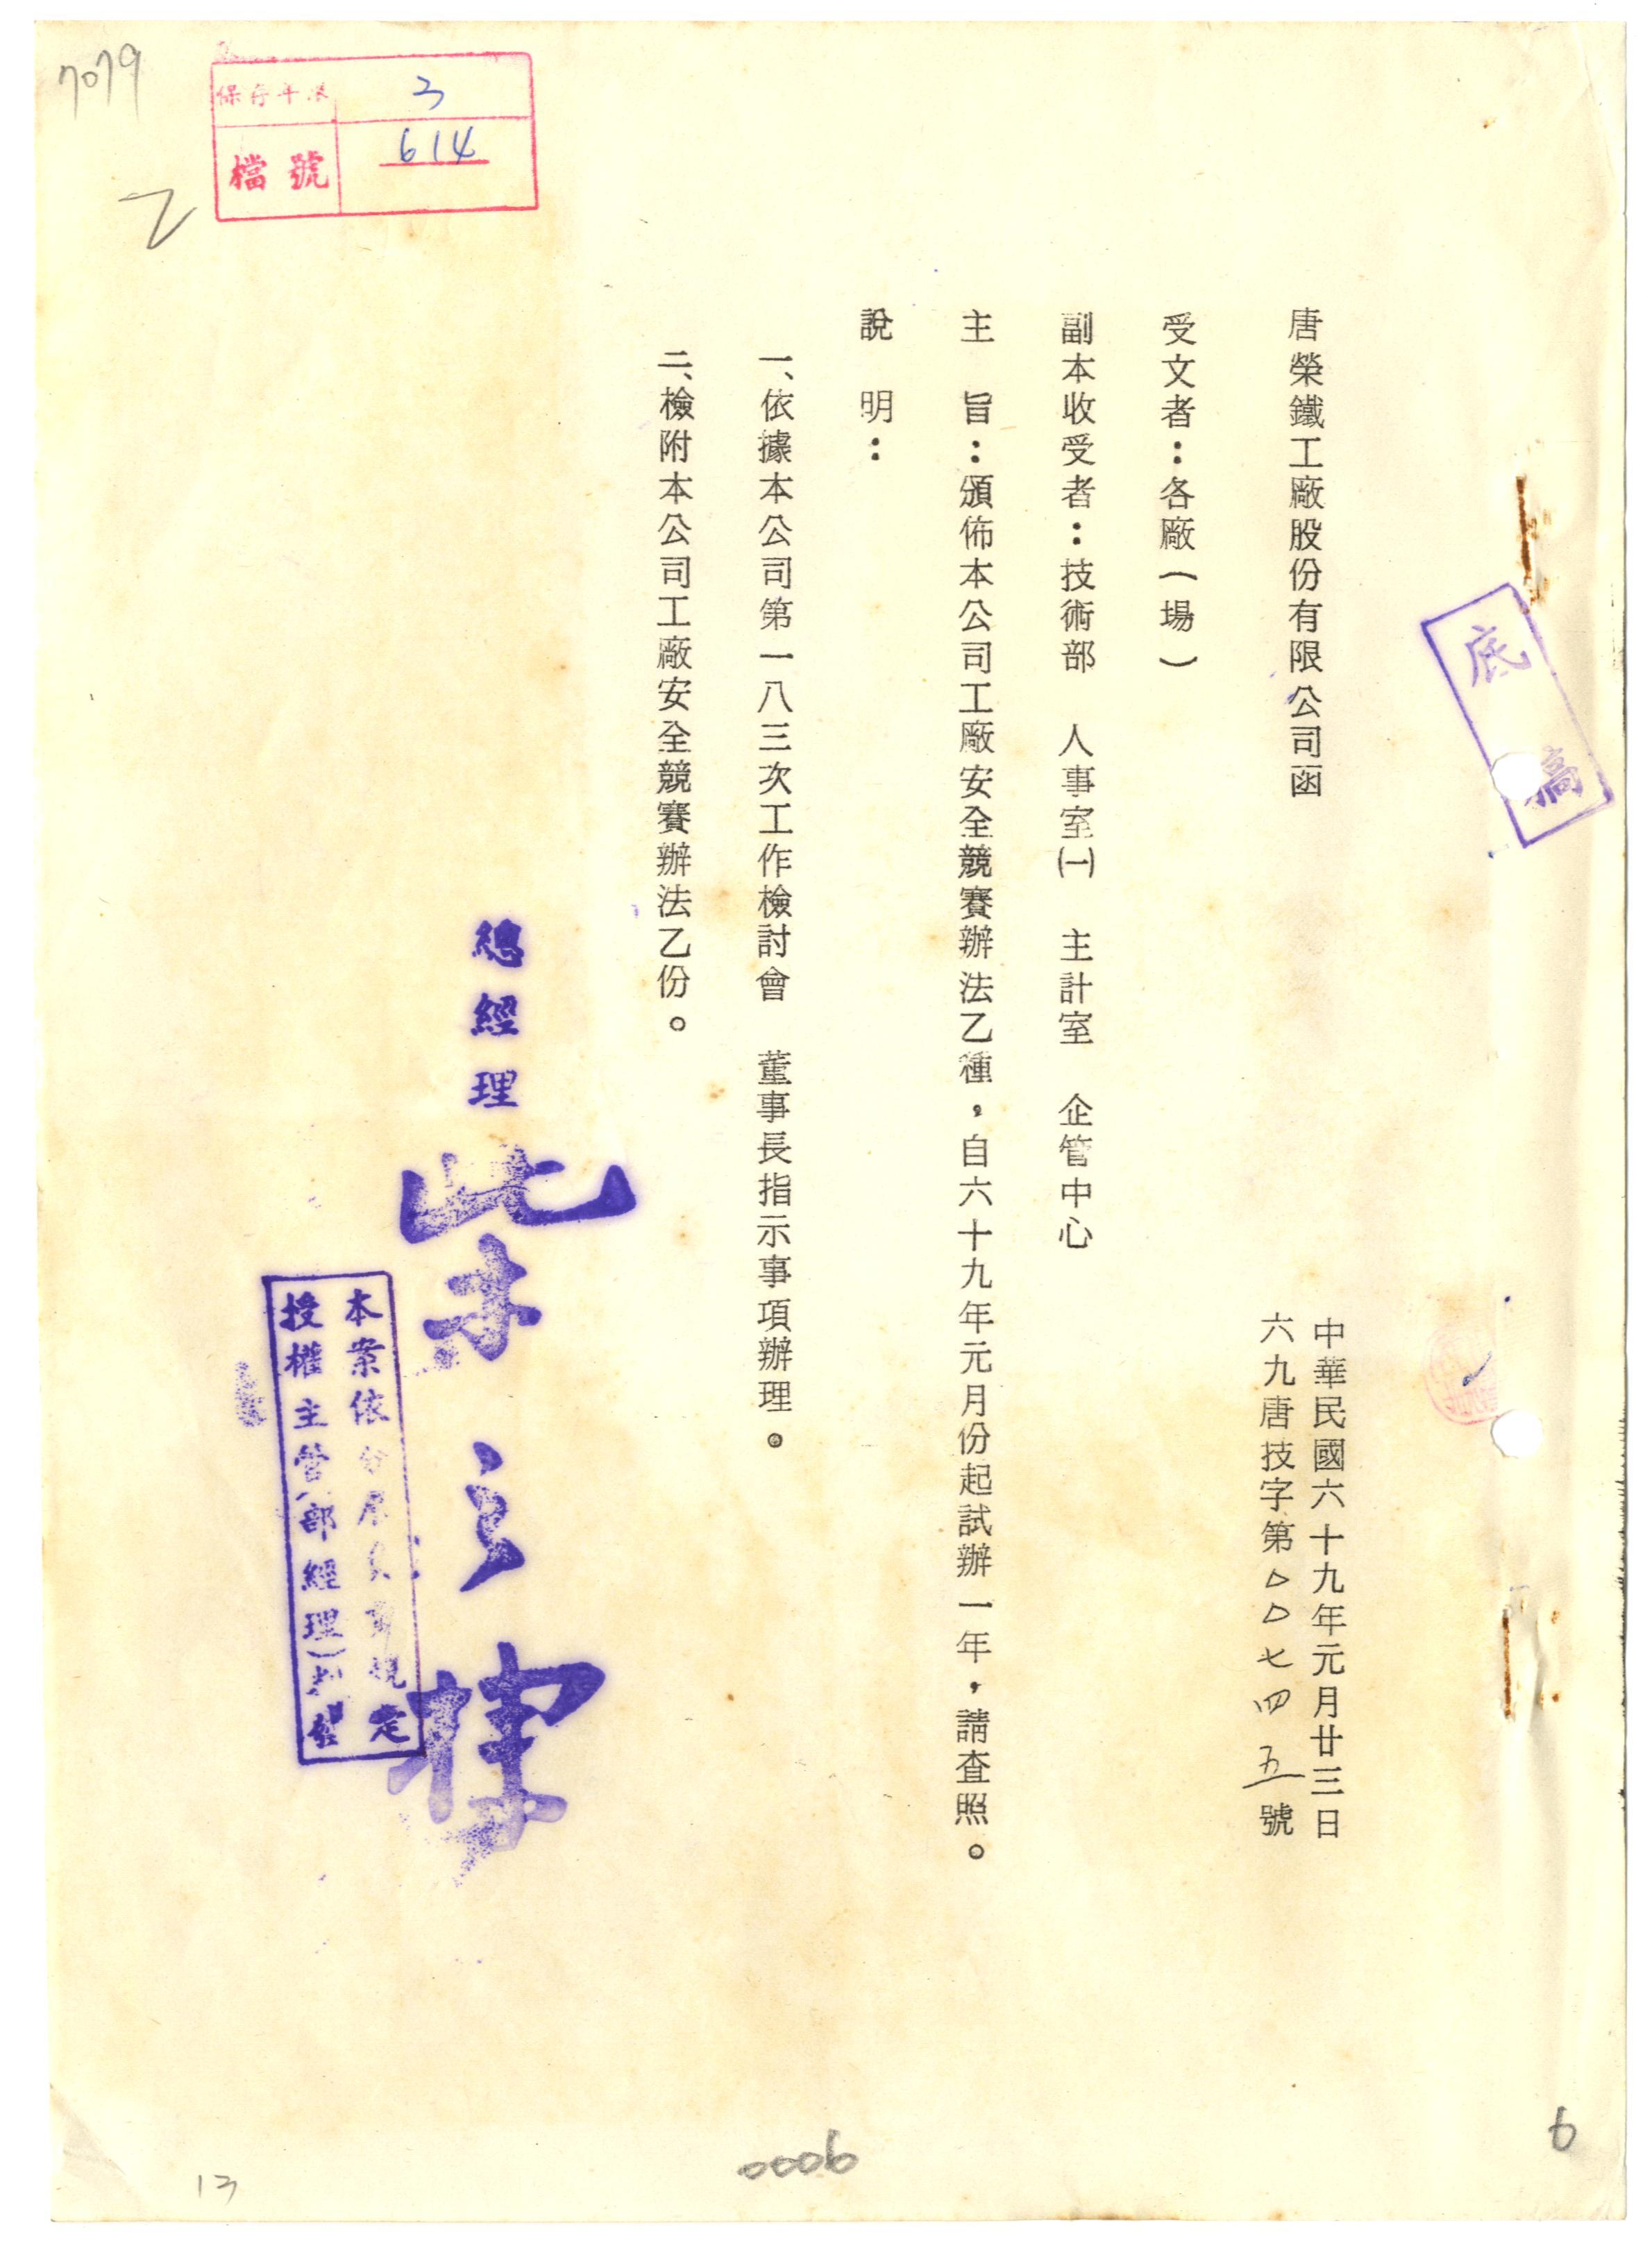 唐榮鐵工廠股份有限公司函
底稿
中華民國六十九年元月廿三日
六九唐技字第００七四五號
受文者：各廠（場）
副本收受者：技術部　人事室㈠　主計室　企管中心
主　旨：頒佈本公司工廠安全競賽辦法乙種，自六十九年元月份起試辦一年，請查照。
說　明：
一、依據本公司第一八三次工作檢討會　董事長指示事項辦理。
二、檢附本公司工廠安全競賽辦法乙份。
總經理
本案依分層負責規定
授權主管（部經理）判發
保存年限 3
檔號 614
7079
乙
6
0006
13